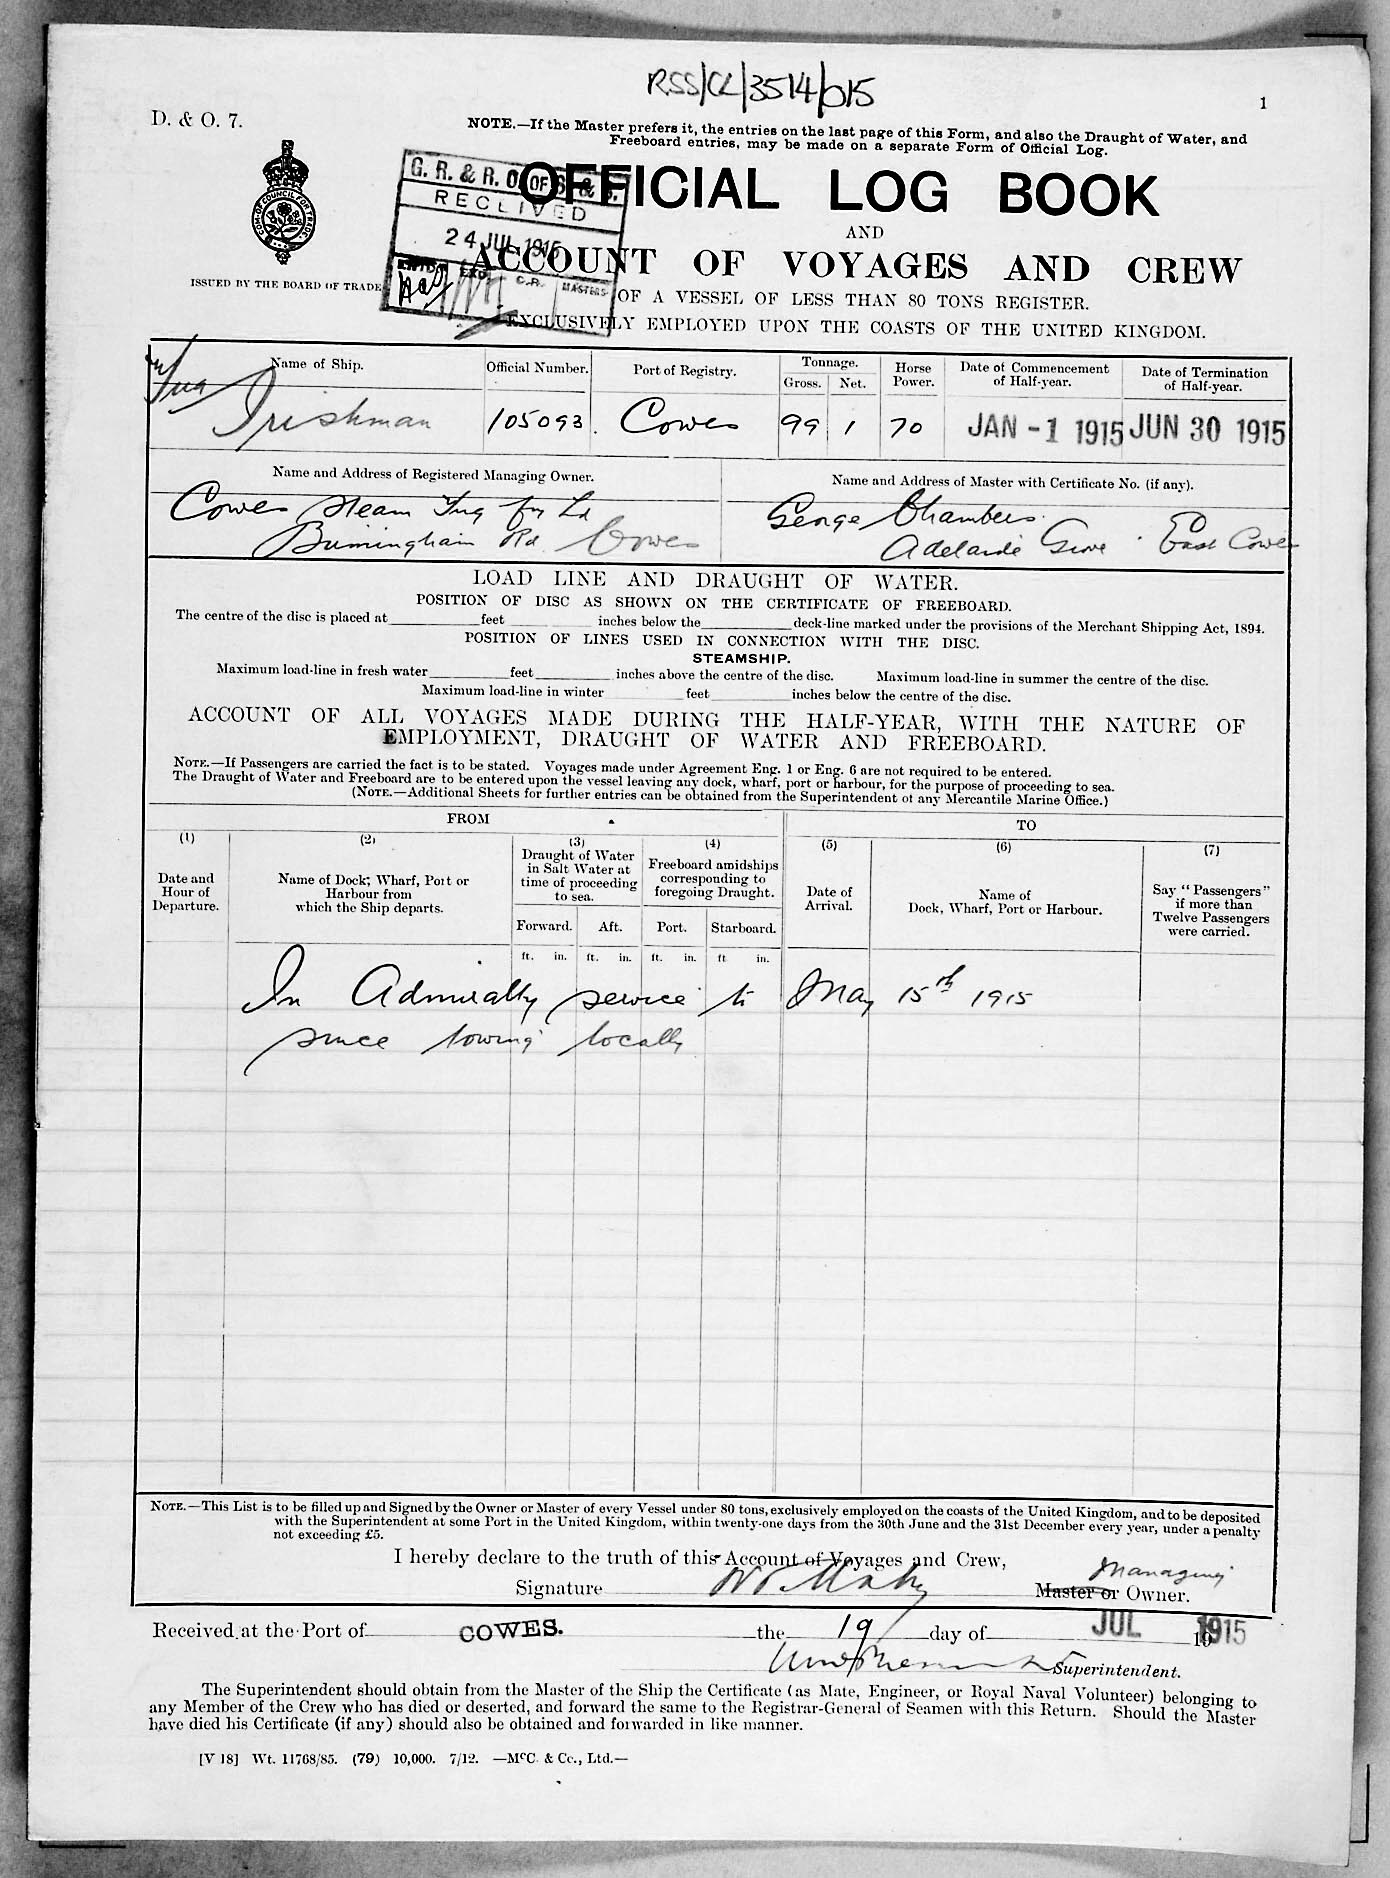 RSS/CL/3514/015
1
D. & O. 7.
NOTE.—If the Master prefers it, the entries on the last page of this Form, and also the Draught of Water, and
Freeboard entries, may be made on a separate Form of Official Log.
G. R. & R. O. OF S. & S.
RECEIVED
24 JUL 1915
EXD. C.R. MASTERS
OFFICIAL LOG BOOK
AND
ACCOUNT OF VOYAGES AND CREW
COM. OF COUNCIL FOR TRADE
ISSUED BY THE BOARD OF TRADE
OF A VESSEL OF LESS THAN 80 TONS REGISTER.
EXCLUSIVELY EMPLOYED UPON THE COASTS OF THE UNITED KINGDOM.
Name of Ship. Official Number. Port of Registry. Tonnage. Gross. Net. Horse Power. Date of Commencement of Half-year. Date of Termination of Half-year.
Tug
Irishman 105093. Cowes 99 1 70 JAN -1 1915 JUN 30 1915
Name and Address of Registered Managing Owner. Name and Address of Master with Certificate No. (if any).
Cowes Steam Tug Ld George Chambers
Birmingham Rd Cowes Adelaide Grove East Cowes
LOAD LINE AND DRAUGHT OF WATER.
POSITION OF DISC AS SHOWN ON THE CERTIFICATE OF FREEBOARD.
The centre of the disc is placed at feet inches below the deck-line marked under the provisions of the Merchant Shipping Act, 1894.
POSITION OF LINES USED IN CONNECTION WITH THE DISC.
STEAMSHIP.
Maximum load-line in fresh water feet inches above the centre of the disc. Maximum load-line in summer the centre of the disc.
Maximum load-line in winter feet inches below the centre of the disc.
ACCOUNT OF ALL VOYAGES MADE DURING THE HALF-YEAR, WITH THE NATURE OF
EMPLOYMENT, DRAUGHT OF WATER AND FREEBOARD.
NOTE.—If Passengers are carried the fact is to be stated. Voyages made under Agreement Eng. 1 or Eng. 6 are not required to be entered.
The Draught of Water and Freeboard are to be entered upon the vessel leaving any dock, wharf, port or harbour, for the purpose of proceeding to sea.
(NOTE.—Additional Sheets for further entries can be obtained from the Superintendent of any Mercantile Marine Office.)
FROM TO
(1) (2) (3) (4) (5) (6) (7)
Date and
Hour of
Departure.
Name of Dock, Wharf, Port or
Harbour from
which the Ship departs.
Draught of Water
in Salt Water at
time of proceeding
to sea.
Freeboard amidships
corresponding to
foregoing Draught.
Date of
Arrival.
Name of
Dock, Wharf, Port or Harbour.
Say "Passengers"
if more than
Twelve Passengers
were carried.
Forward. Aft. Port. Starboard.
ft. in. ft. in. ft. in. ft in.
In Admiralty service to May 15th 1915
since towing locally
NOTE.—This List is to be filled up and Signed by the Owner or Master of every Vessel under 80 tons, exclusively employed on the coasts of the United Kingdom, and to be deposited
with the Superintendent at some Port in the United Kingdom, within twenty-one days from the 30th June and the 31st December every year, under a penalty
not exceeding £5.
I hereby declare to the truth of this Account of Voyages and Crew,
Managing
Signature Master or Owner.
Received at the Port of COWES. the 19 day of JUL 191915
Superintendent.
The Superintendent should obtain from the Master of the Ship the Certificate (as Mate, Engineer, or Royal Naval Volunteer) belonging to
any Member of the Crew who has died or deserted, and forward the same to the Registrar-General of Seamen with this Return. Should the Master
have died his Certificate (if any) should also be obtained and forwarded in like manner.
[V 18] Wt. 11768/85. (79) 10,000. 7/12. —McC. & Co., Ltd.—